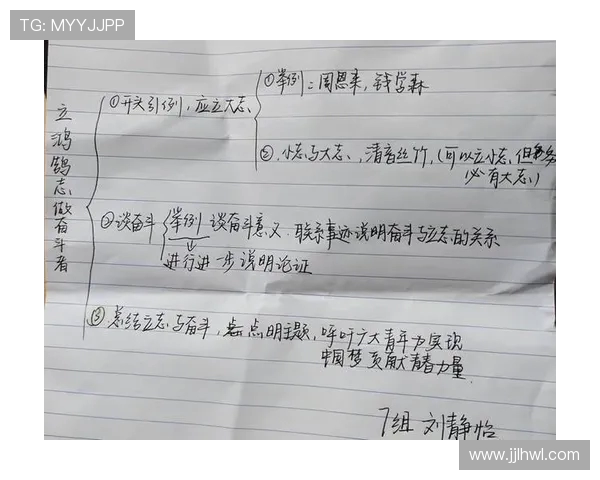 TG: MYYJJPP
立鸿鹄志,做奋斗者
①开头引例,应立大志
①举例:周恩来,钱学森
②.小志与大志,清音丝竹,(可以立小志,但
必有大志)
②谈奋斗
举例 谈奋斗意义.联系事迹说明奋斗与立志的关系
进行进一步说明论证
③总结立志与奋斗,点明主题,呼吁广大青年为实现
中国梦贡献青春力量.
7组 刘静怡
www.jjlhwl.com